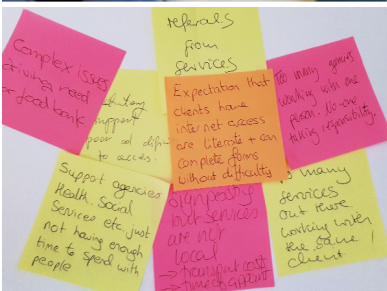 referrals
from
services
Complex issues
driving need
for foodbank
support
poor and
to access.
Expectation that
clients have
internet access
are literate + can
complete forms
without difficulty
Too many agencies
working with one
person. No-one
taking responsibility.
Support agencies
Health, Social
Services etc. just
not having enough
time to spend with
people
Signposting
but services
are not
local
→ transport cost
→ time
many
services
out there
working with
the same
client.